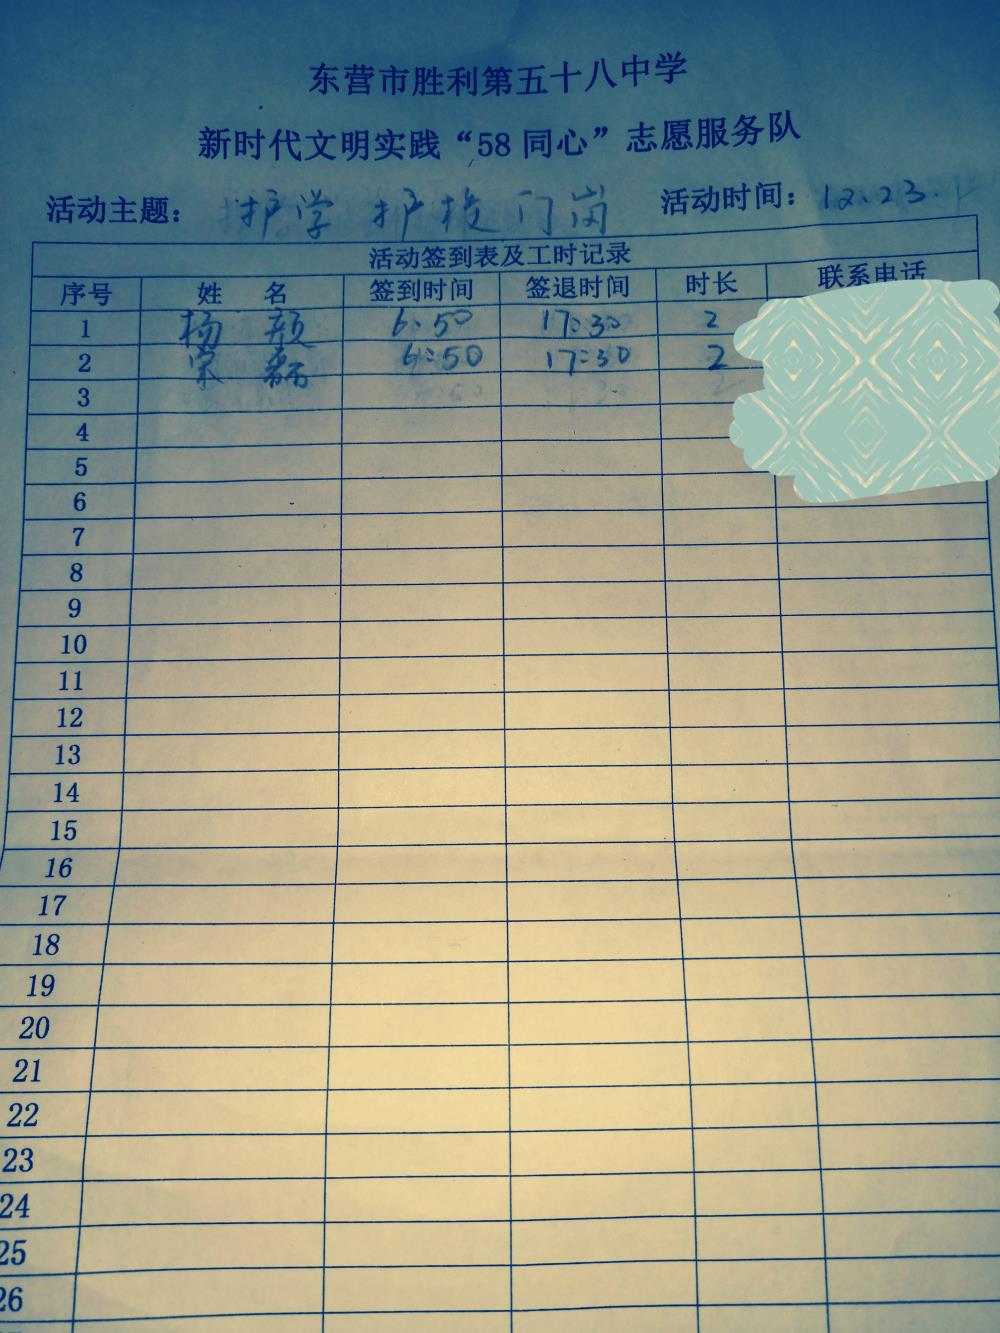 东营市胜利第五十八中学
新时代文明实践“58 同心”志愿服务队
活动主题：护学 护校 门岗 活动时间：12.23.
活动签到表及工时记录
序号 姓 名 签到时间 签退时间 时长 联系电话
1 杨 颜 6:50 17:30 2
2 宋 6:50 17:30 2
3
4
5
6
7
8
9
10
11
12
13
14
15
16
17
18
19
20
21
22
23
24
25
26